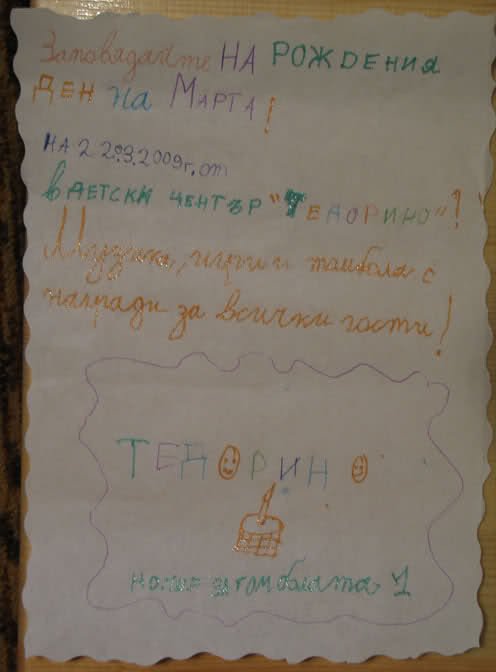 Заповядайте НА РОЖДЕНИЯ
ДЕН на МАРТА!
НА 22.03.2009г. от
в ДЕТСКИ ЦЕНТЪР "ТЕДОРИНО"!
Музика, игри и томбола с
награди за всички гости!
ТЕДОРИНО
за томболата 1